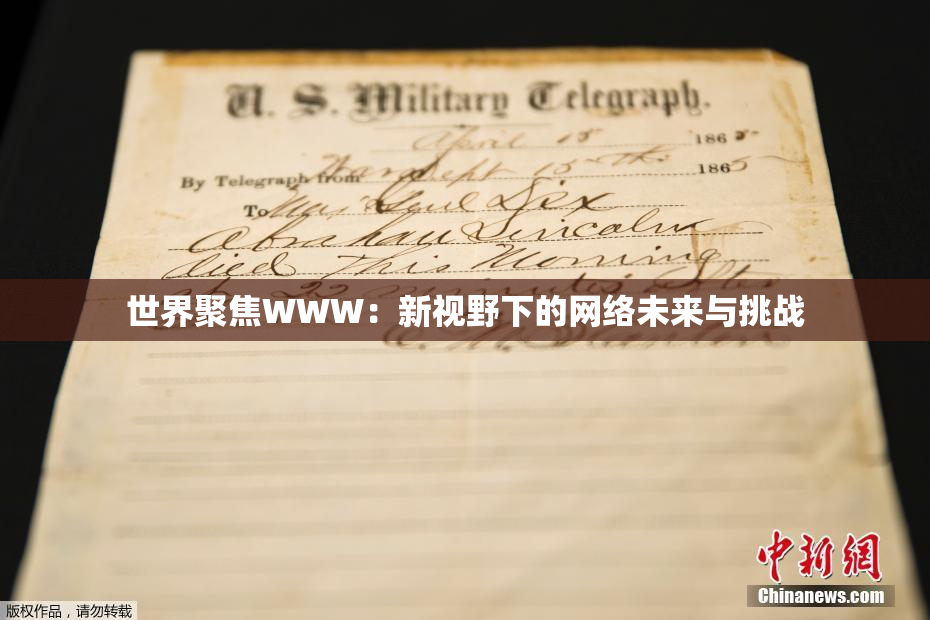 U. S. Military Telegraph.
April 15 1865
By Telegraph from War Dept 15th 1865
To Maj Genl Dix
Abraham Lincoln
died This Morning
at 22 minutes after
世界聚焦WWW：新视野下的网络未来与挑战
E. M. Stanton
中新网
Chinanews.com
版权作品，请勿转载